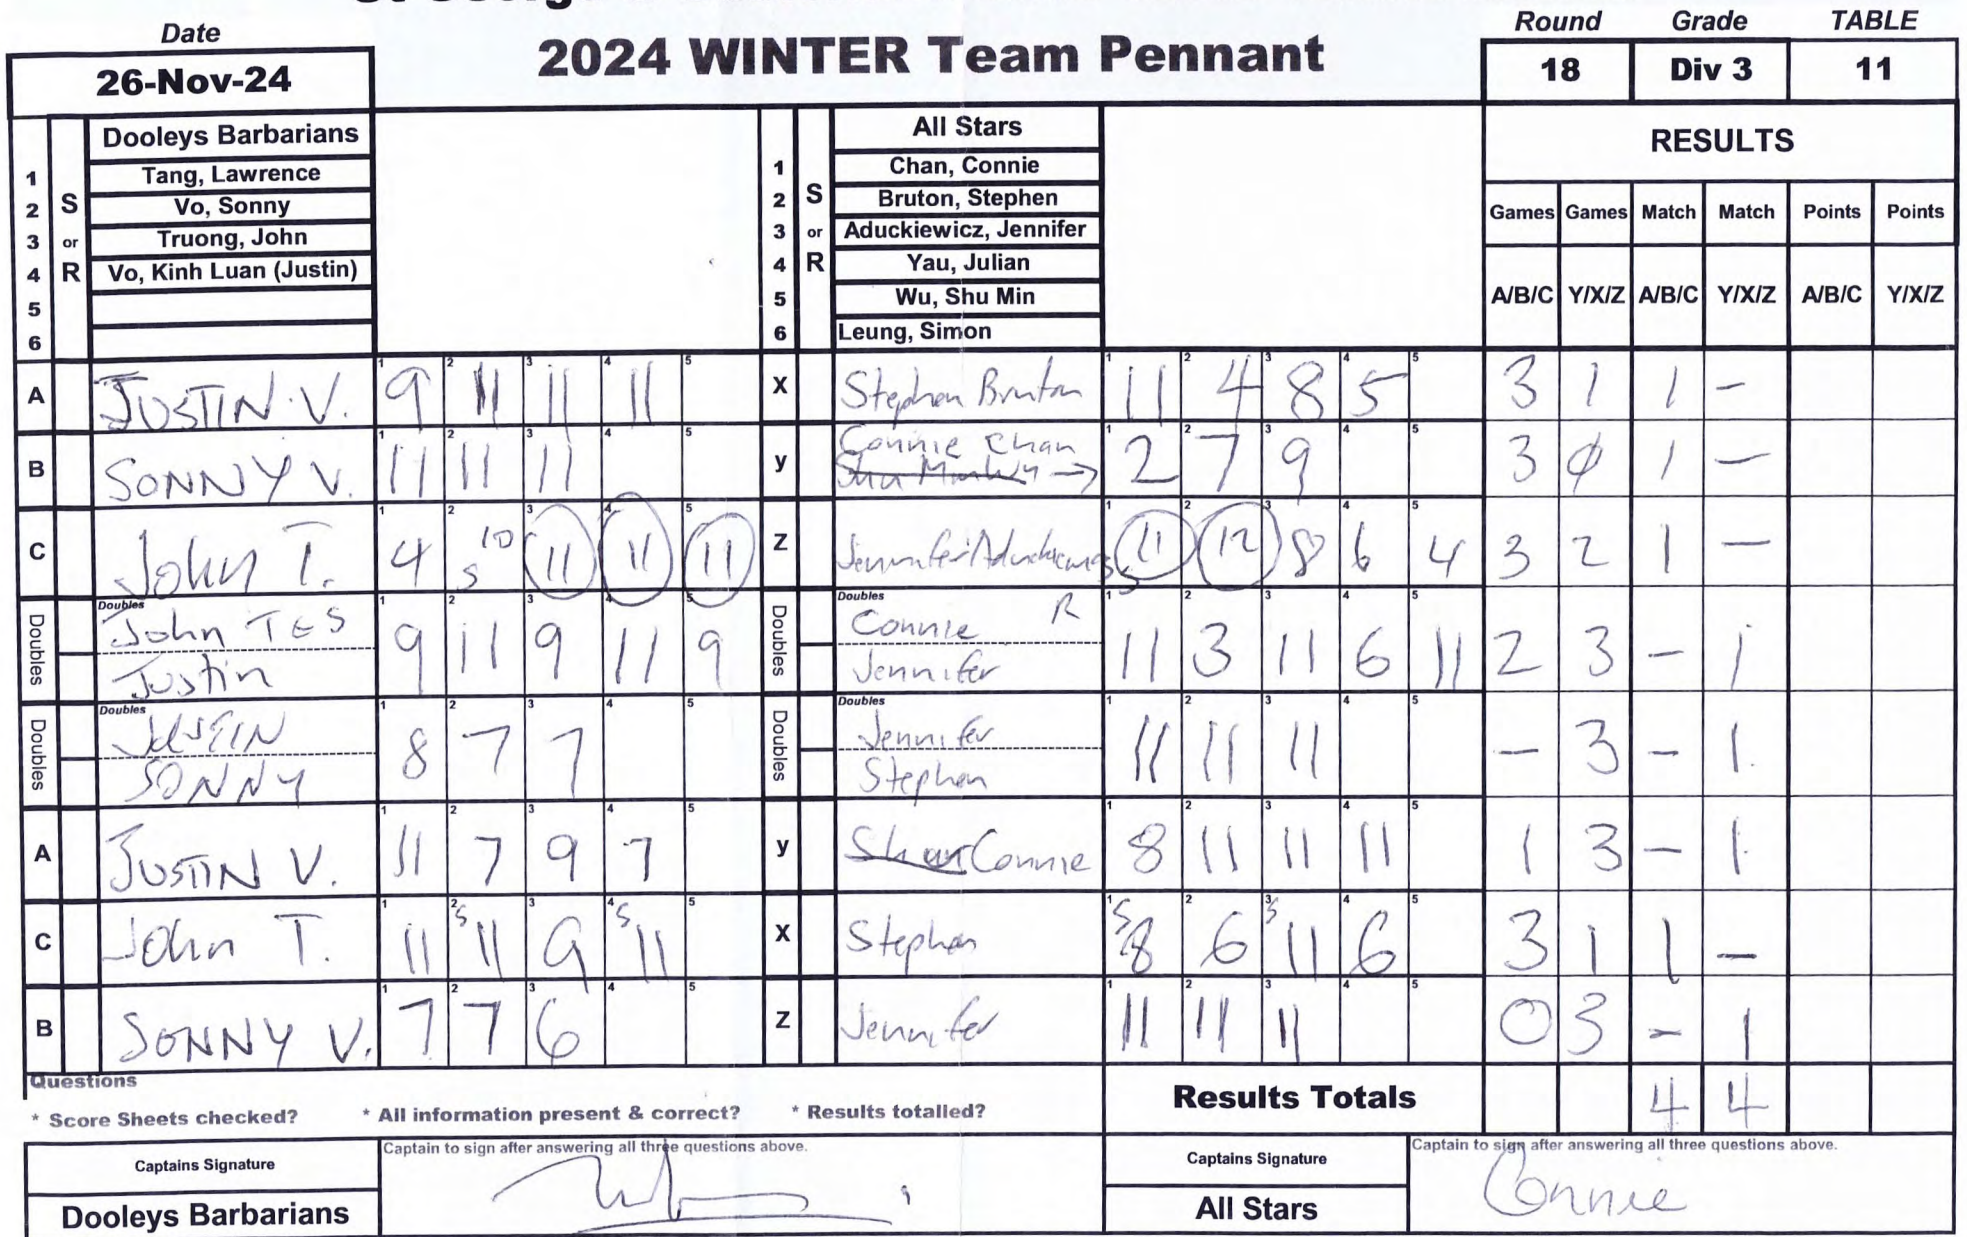 Date
26-Nov-24
2024 WINTER Team Pennant
Round Grade TABLE
18 Div 3 11
S or R
Dooleys Barbarians
1 Tang, Lawrence
2 Vo, Sonny
3 Truong, John
4 Vo, Kinh Luan (Justin)
5
6
S or R
All Stars
1 Chan, Connie
2 Bruton, Stephen
3 Aduckiewicz, Jennifer
4 Yau, Julian
5 Wu, Shu Min
6 Leung, Simon
RESULTS
Games Games Match Match Points Points
A/B/C Y/X/Z A/B/C Y/X/Z A/B/C Y/X/Z
A JUSTIN V. 1 9 2 11 3 11 4 11 5 X Stephen Bruton 1 11 2 4 3 8 4 5 5 3 1 1 -
B SONNY V. 1 11 2 11 3 11 4 5 y Connie Chan → 1 2 2 7 3 9 4 5 3 0 1 -
C John T. 1 4 2 10 S 3 11 4 11 5 11 Z Jennifer 1 11 2 12 3 8 4 6 5 4 3 2 1 -
Doubles Doubles John T & S Justin 1 9 2 11 3 9 4 11 5 9 Doubles Doubles Connie R Jennifer 1 11 2 3 3 11 4 6 5 11 2 3 - 1
Doubles Doubles JUSTIN SONNY 1 8 2 7 3 7 4 5 Doubles Doubles Jennifer Stephen 1 11 2 11 3 11 4 5 - 3 - 1
A JUSTIN V. 1 11 2 7 3 9 4 7 5 y Connie 1 8 2 11 3 11 4 11 5 1 3 - 1
C John T. 1 11 2 S 11 3 9 4 S 11 5 X Stephen 1 S 8 2 6 3 S 11 4 6 5 3 1 1 -
B SONNY V. 1 7 2 7 3 6 4 5 Z Jennifer 1 11 2 11 3 11 4 5 0 3 - 1
Questions
* Score Sheets checked? * All information present & correct? * Results totalled?
Results Totals 4 4
Captains Signature
Dooleys Barbarians
Captain to sign after answering all three questions above.
Captains Signature
All Stars
Captain to sign after answering all three questions above.
Connie